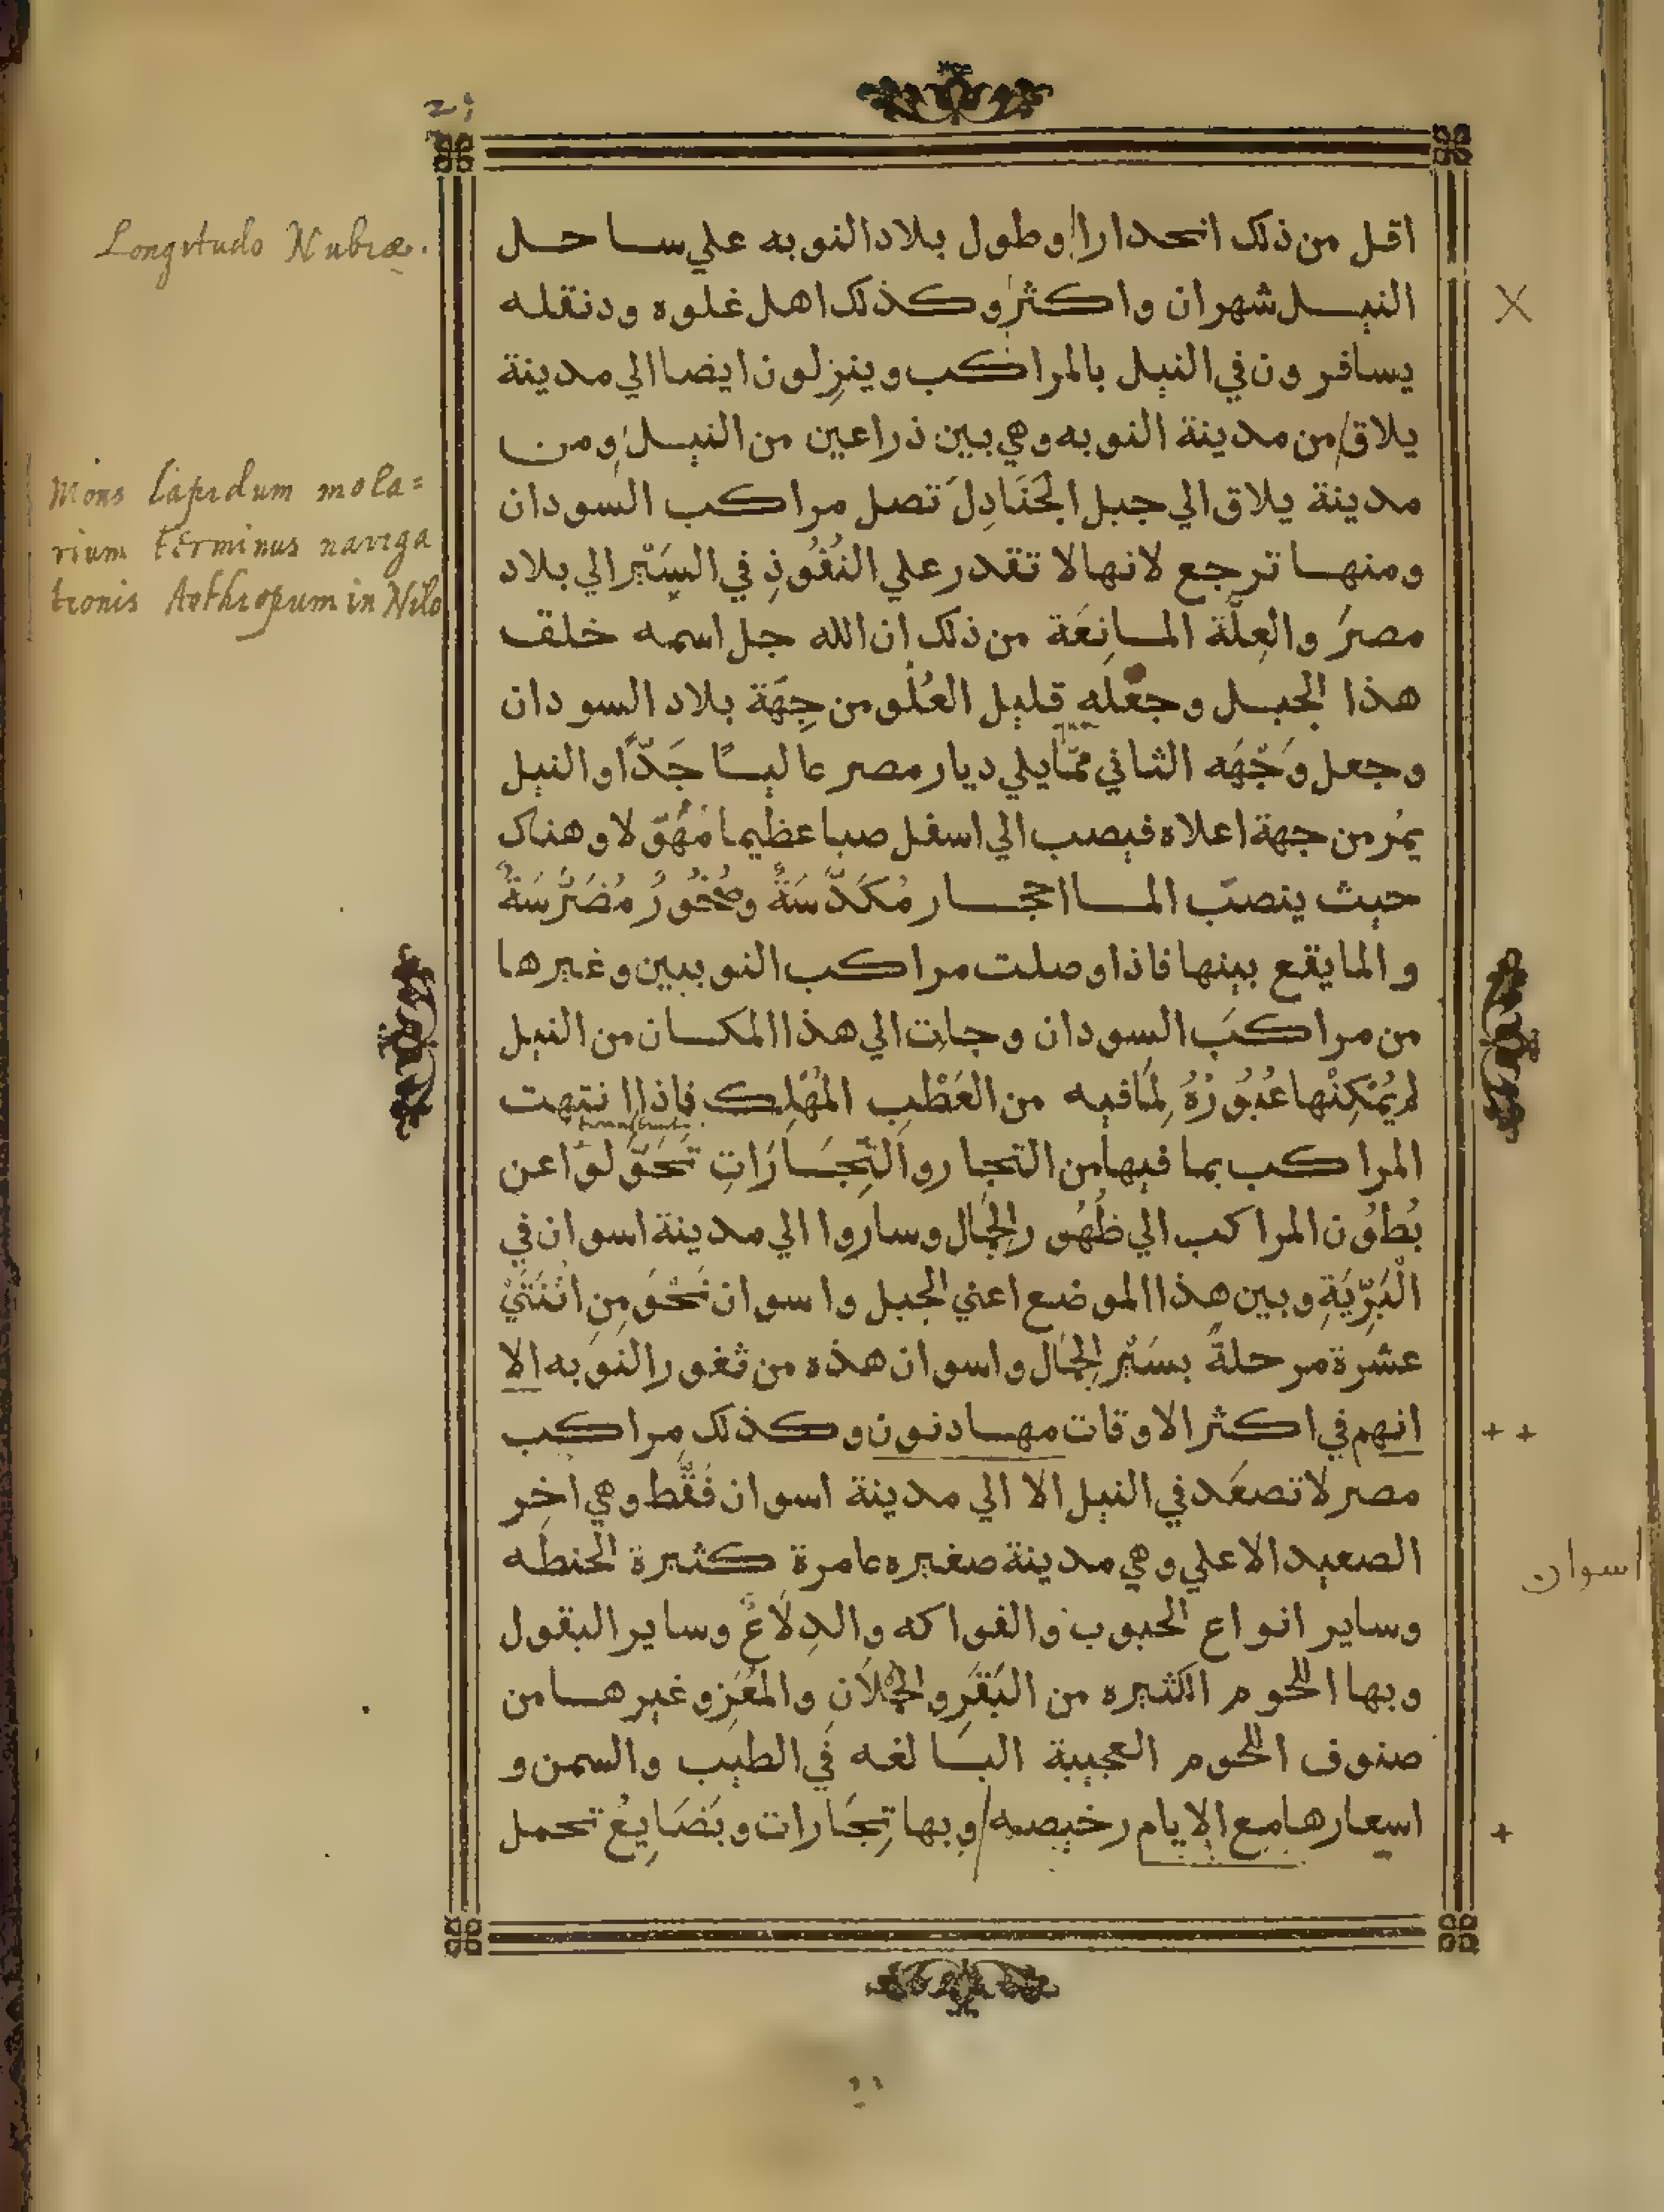 Longitudo Nubiæ.
Mons lapidum mola=
rium terminus naviga
tionis Aethiopum in Nilo
اقل من ذلك انحدارا وطول بلاد النوبه علي ساحل
النيل شهران واكثر وكذلك اهل غلوه ودنقله
يسافرون في النيل بالمراكب وينزلون ايضا الي مدينة
يلاق من مدينة النوبه وهي بين ذراعين من النيل ومن
مدينة يلاق الي جبل الجَنَادِلَ تصل مراكب السودان
ومنهـا ترجع لانها لا تقدر علي النُفُوذِ في السَيْر الي بلاد
مصرَ والعِلَّة المـانِعَة من ذلك ان الله جل اسمه خلق
هذا الجبل وجعله قليل العُلْو من جِهَة بلاد السودان
وجعل وَجْهَه الثاني ممَّا يلي ديار مصر عاليـًا جَدّاً والنيل
يمُر من جهة اعلاه فيصب الي اسفل صبا عظيما مُهَوّلا وهناك
حيث ينصبّ المـا احجـار مُكَدَّسَةٌ وصُخُورٌ مُضَرَّسَةٌ
والما يقع بينها فاذا وصلت مراكب النوبيين وغيرها
من مراكبَ السودان وجات الي هذا المكـان من النيل
لم يُمْكِنْها عُبُورُهُ لِمَا فيه من العَطْبِ المُهْلِك فاذا انتهت
المراكب بما فيها من التجار والتِّجَـارَاتِ تَحَوَّلوَا عن
بُطوُن المراكب الي ظُهُور الجِمَال وساروا الي مدينة اسوان في
الْبَرِّيَةِ وبين هذا الموضع اعني الجبل واسوان نَحْوَ مِنِ اثْنَتَيْ
عشرة مرحلةً بسَيْر الجِمَال واسوان هذه من ثغور النوبه الا
انهم في اكثر الاوقات مهـادنون وكذلك مراكب
مصر لا تصعَد في النيل الا الي مدينة اسوان فَقَّط وهي اخِر
الصعيد الاعلي وهي مدينة صغيره عامرة كثيرة الحنطَه
وساير انواع الحبوب والفواكه والدِلَاعْ وساير البقول
وبها اللحوم الكثيره من البَقَرِ والحُمْلَانِ والمَعَزِ وغيرهـا من
صنوف اللحوم العجيبة البـالغه في الطيب والسمن و
اسعارها مع الايام رخيصه وبها تِجَارات وبَضَايِعْ تحمل
X
+ +
اسوان
+